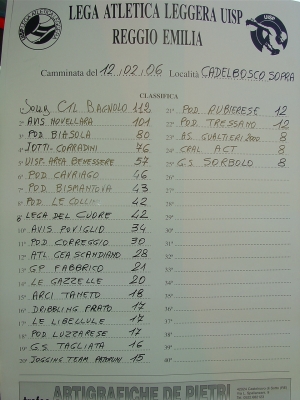 LEGA ATLETICA LEGGERA UISP
REGGIO EMILIA
UISP
Camminata del 12/02/06 Località CADELBOSCO SOPRA
CLASSIFICA
CTL BAGNOLO 112
2° AVIS NOVELLARA 101
3° POD BIASOLA 80
4° JOTTI-CORRADINI 76
5° UISP. AREA BENESSERE 57
6° POD CAVRIAGO 46
7° POD BISMANTOVA 43
8° POD LE COLLINE 42
LEGA DEL CUORE 42
10° AVIS POVIGLIO 34
11° POD CORREGGIO 30
12° ATL. GEA SCANDIANO 28
13° GP FABBRICO 21
14° LE GAZZELLE 20
15° ARCI TANETO 18
16° DRIBBLING PRATO 17
17° LE LIBELLULE 17
18° POD LUZZARESE 17
19° GS. TAGLIATA 16
20° JOGGING TEAM 15
21° POD RUBIERESE 12
22° POD TRESSANO 12
23° AS. GUALTIERI 2000 8
24° CRAL ACT 8
25° G.S SORBOLO 8
26°
27°
28°
29°
30°
31°
32°
33°
34°
35°
36°
37°
38°
39°
40°
ARTIGRAFICHE DE PIETRI